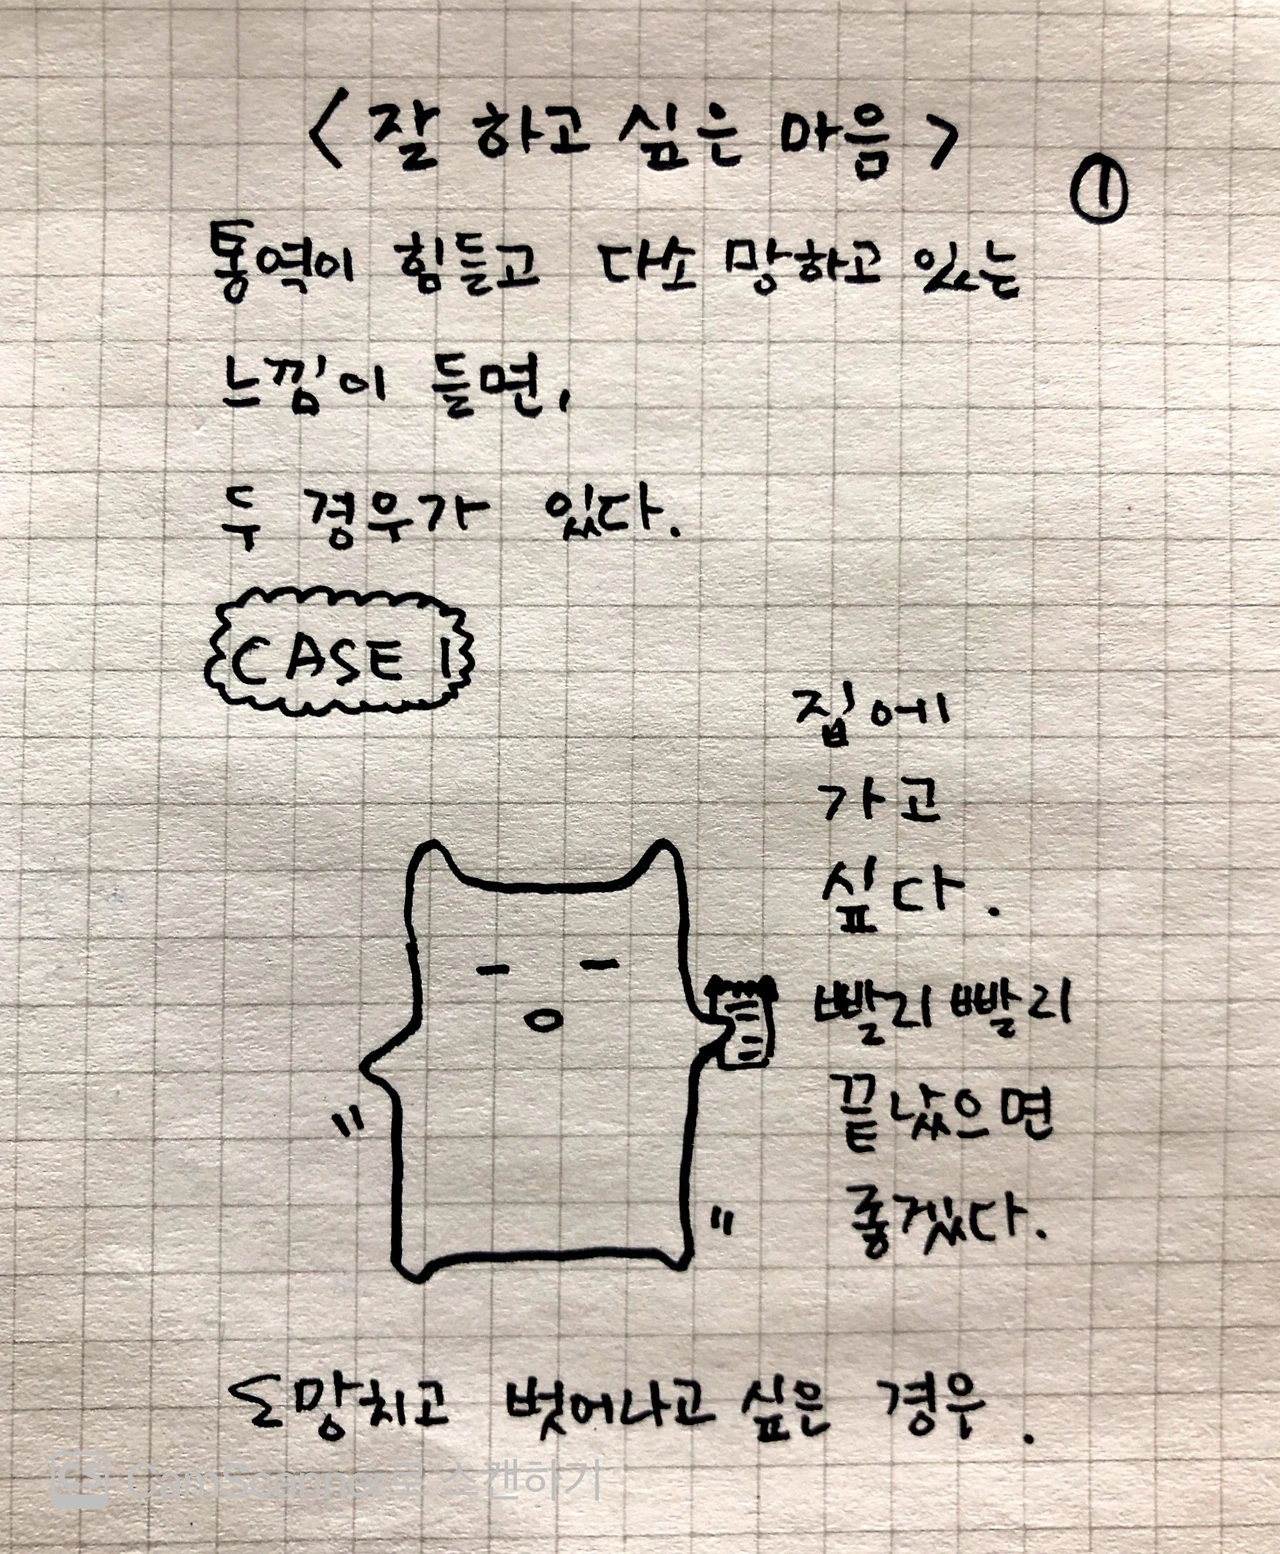 <잘 하고 싶은 마음>
①
통역이 힘들고 다소 망하고 있는
느낌이 들면,
두 경우가 있다.
CASE 1
집에
가고
싶다.
빨리빨리
끝났으면
좋겠다.
도망치고 벗어나고 싶은 경우.
CS CamScanner로 스캔하기